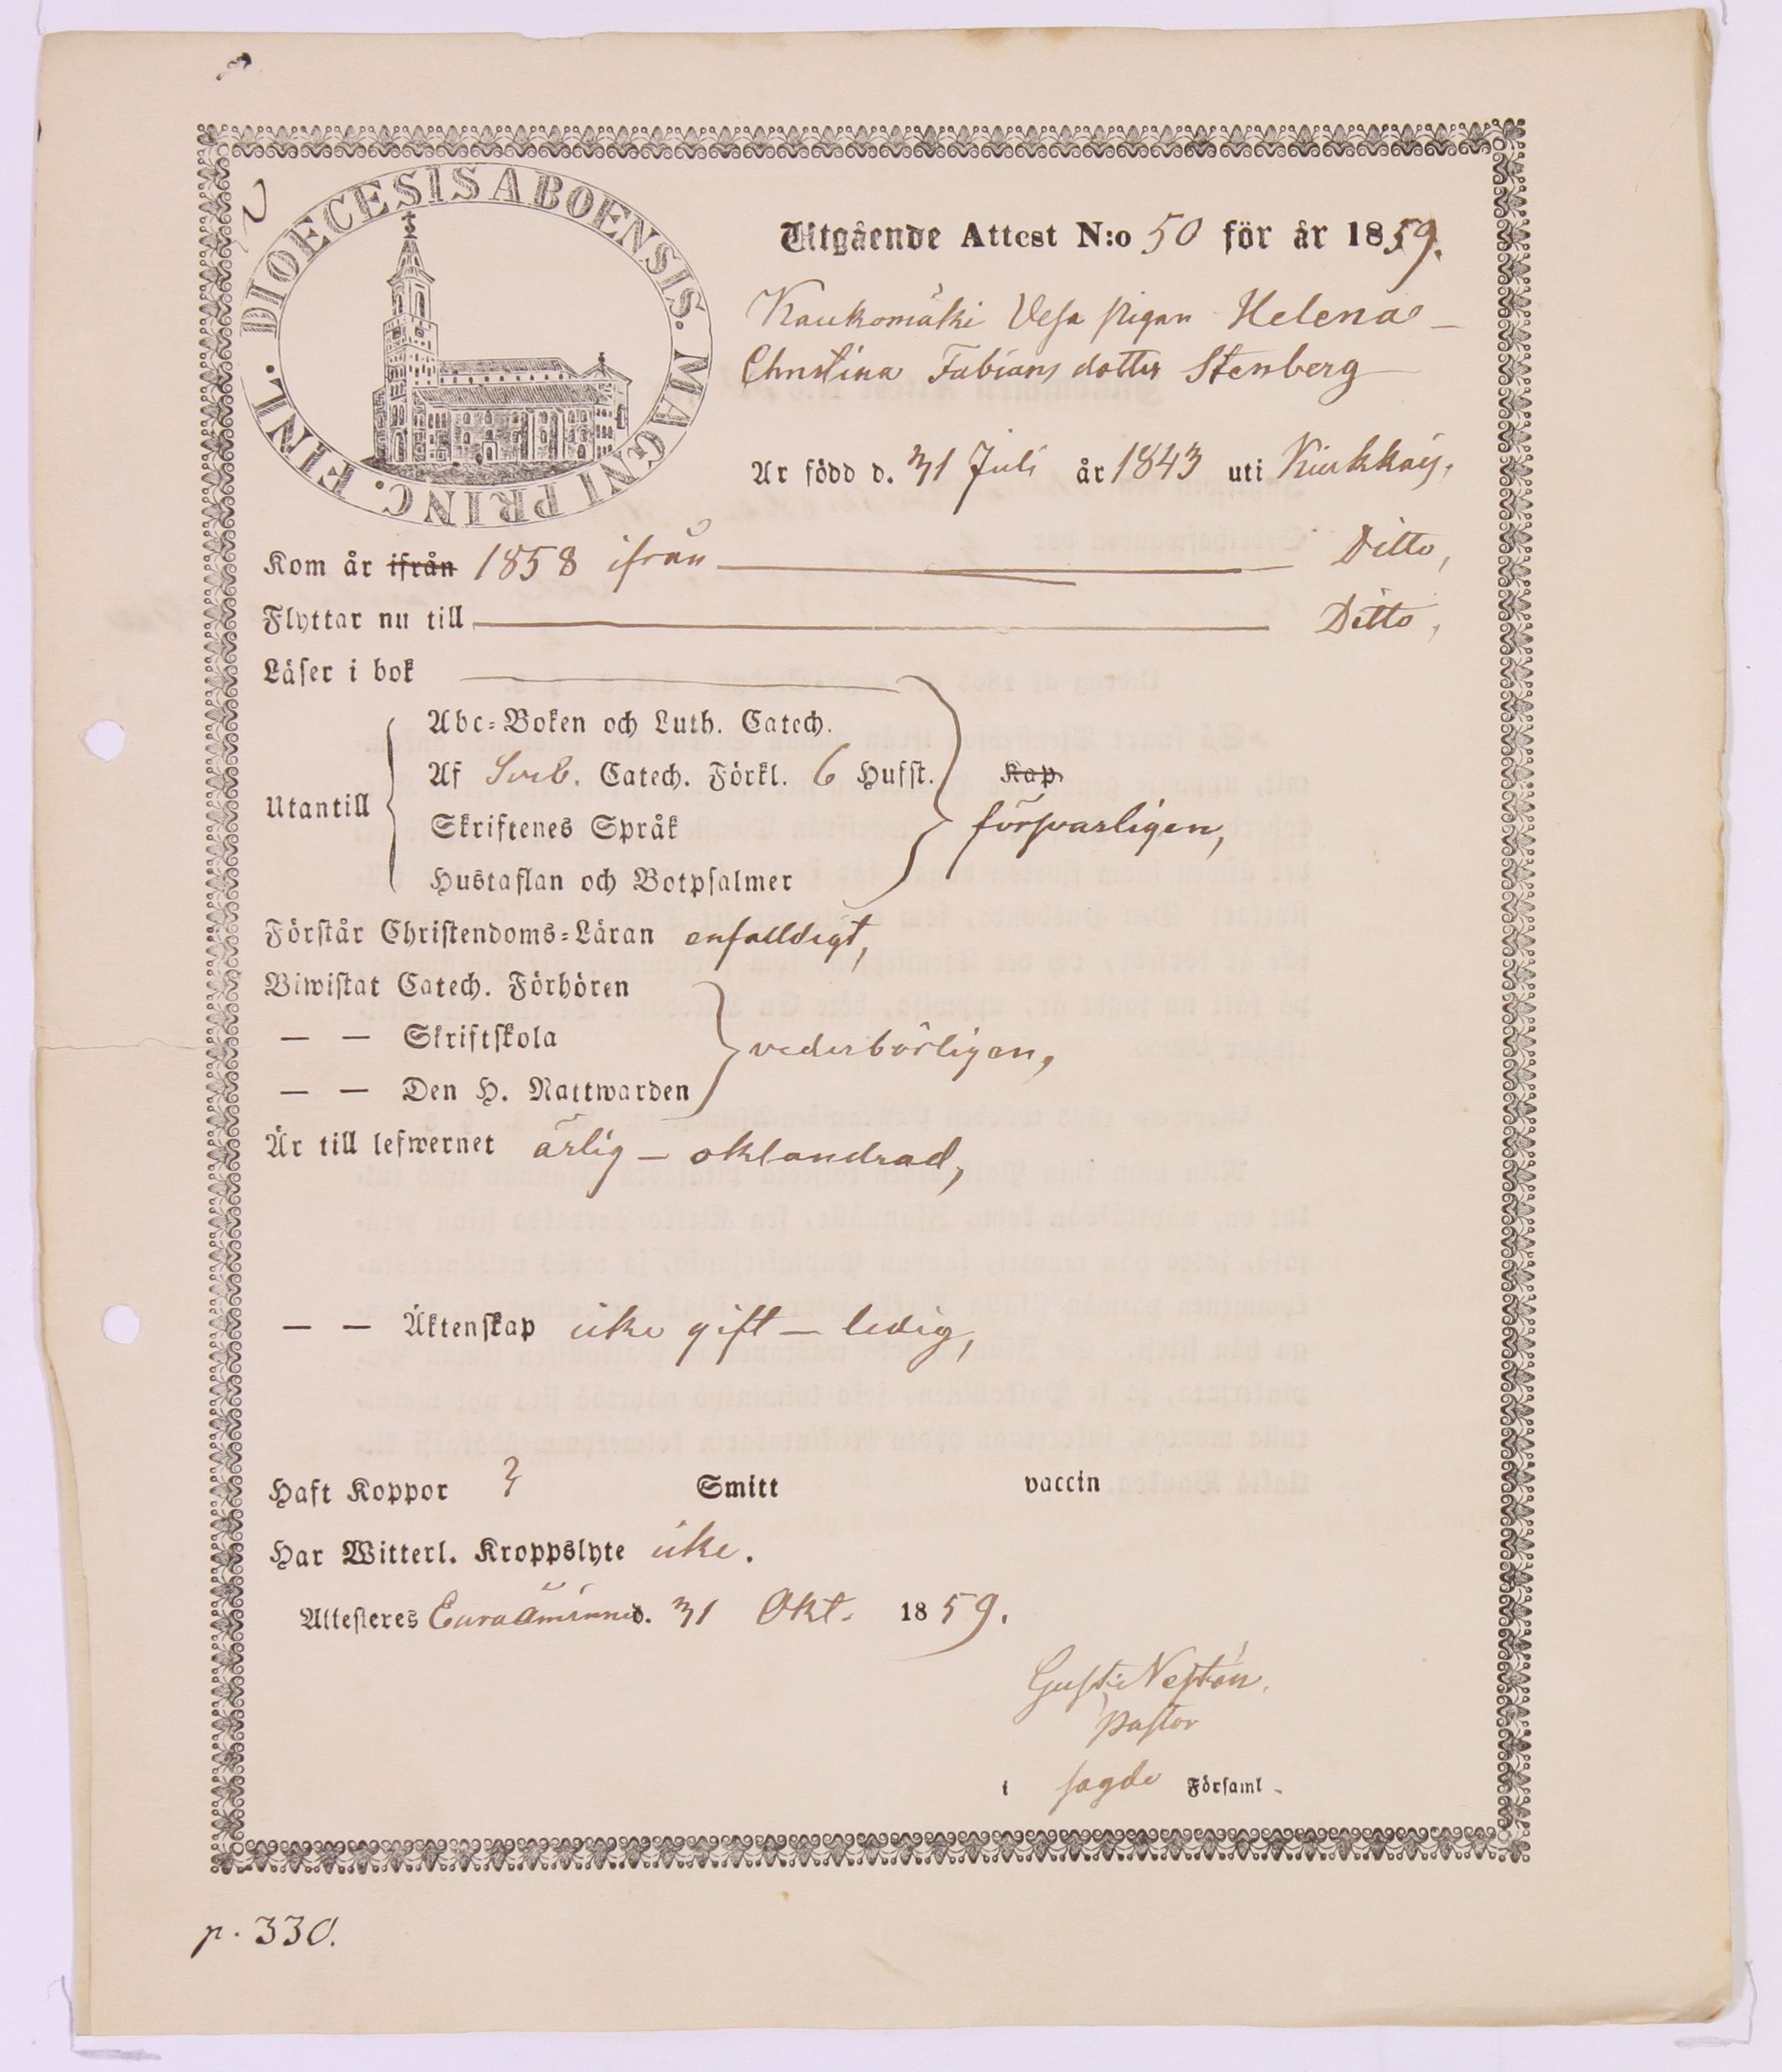 DIOECESIS ABOENSIS. MAGNI PRINC. FINL.
Utgående Attest N:o 50 för år 1859.
Kaukomäki Vesa pigan Helena
Christina Fabians dotter Stenberg
Är född d. 31 Juli år 1843 uti Kiukkais,
Kom år ifrån 1858 ifrån Ditto,
Flyttar nu till Ditto,
Läser i bok
Utantill
Abc-Boken och Luth. Catech.
Af Sveb. Catech. Förkl. 6 Hufst. Kap
Skriftenes Språk försvarligen,
Hustaflan och Botpsalmer
Förstår Christendoms-Läran enfalldigt,
Biwistat Catech. Förhören
— — Skriftskola vederbörligen,
— — Den H. Nattwarden
Är till lefwernet ärlig — oklandrad,
— — Äktenskap icke gift — ledig,
Haft Koppor ? Smitt vaccin
Har Witterl. Kroppslyte icke.
Attesteres Euraåminne d. 31 Okt. 1859.
Gust: Neström,
Pastor
i sagde Församl.
p. 330.